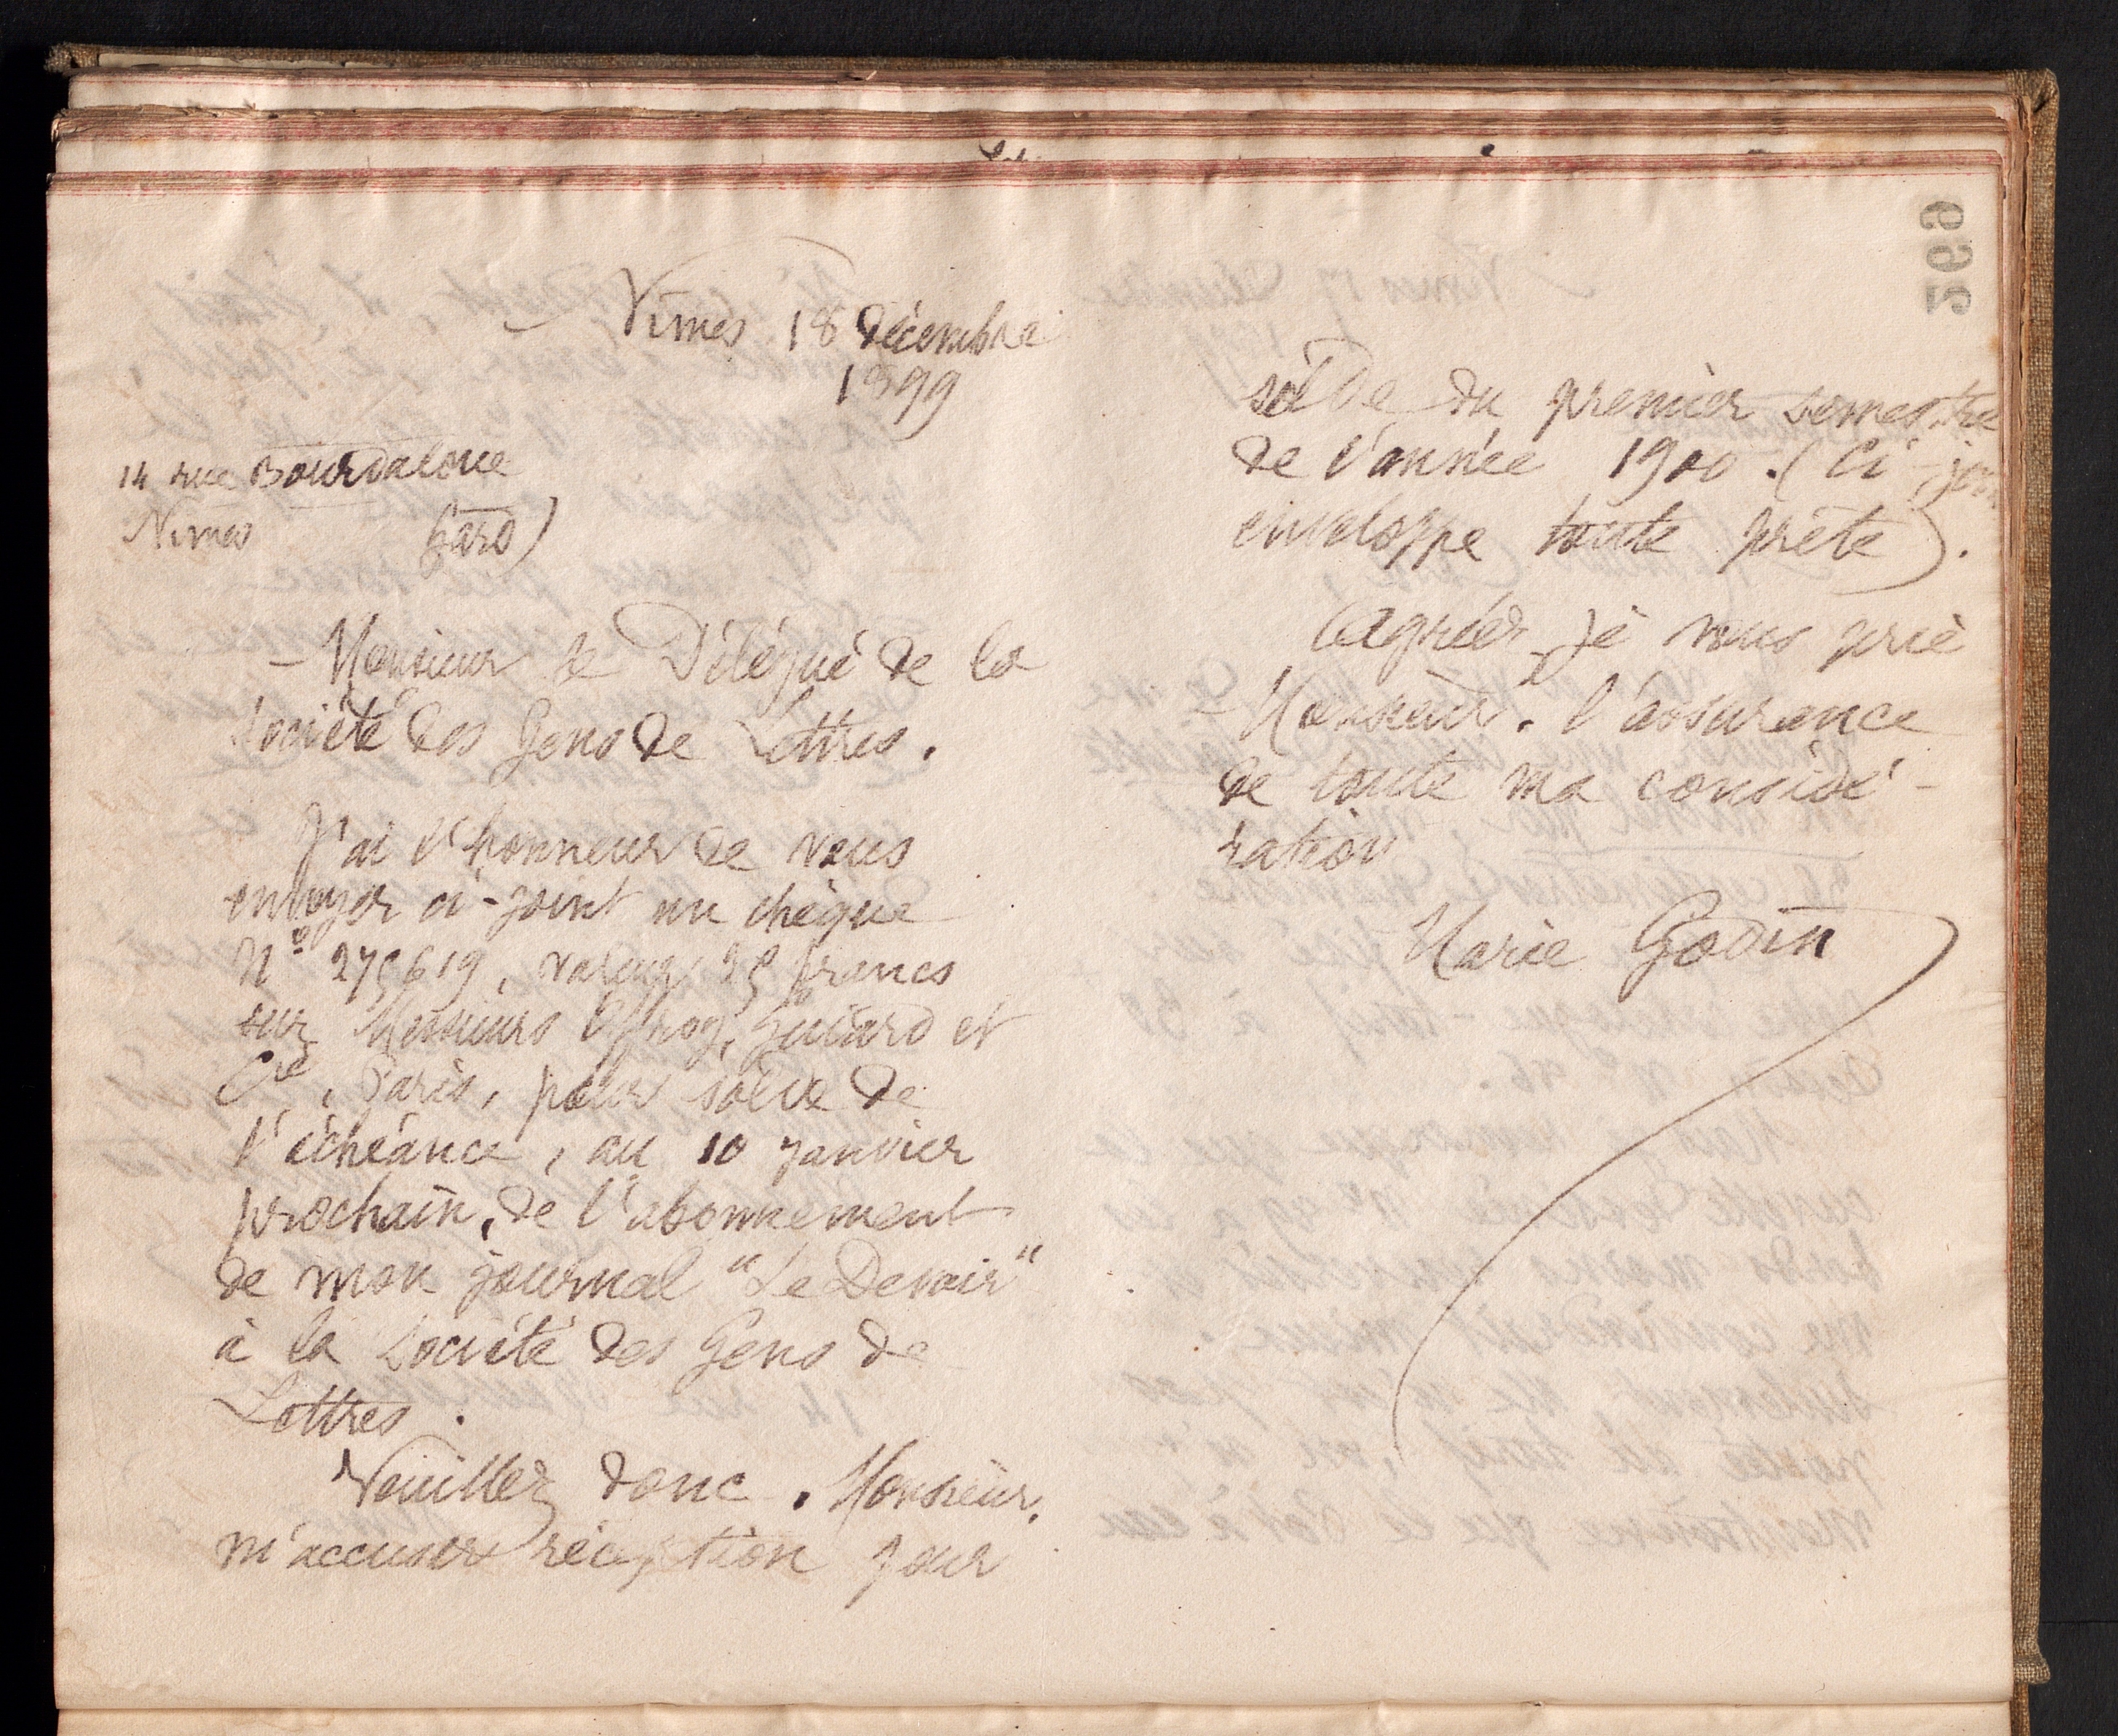 Nimes 18 décembre
1899
14 rue Bourdaloue
Nimes Gard)
Monsieur le Délégué de la
Société des Gens de Lettres.
J'ai l'honneur de vous
envoyer ci-joint un chèque
N° 275619, valeur 25 francs
sur Messieurs Offroy, Guiard et
Cie, Paris, pour solde de
l'échéance, au 10 janvier
prochain, de l'abonnement
de mon journal "Le Devoir"
à la Société des Gens de
Lettres.
Veuillez donc, Monsieur,
m'accuser réception pour
solde du premier semestre
de l'année 1900. (Ci-join
enveloppe toute prête).
Agréer, je vous prie
Monsieur, l'assurance
de toute ma considé-
ration
Marie Godin
269